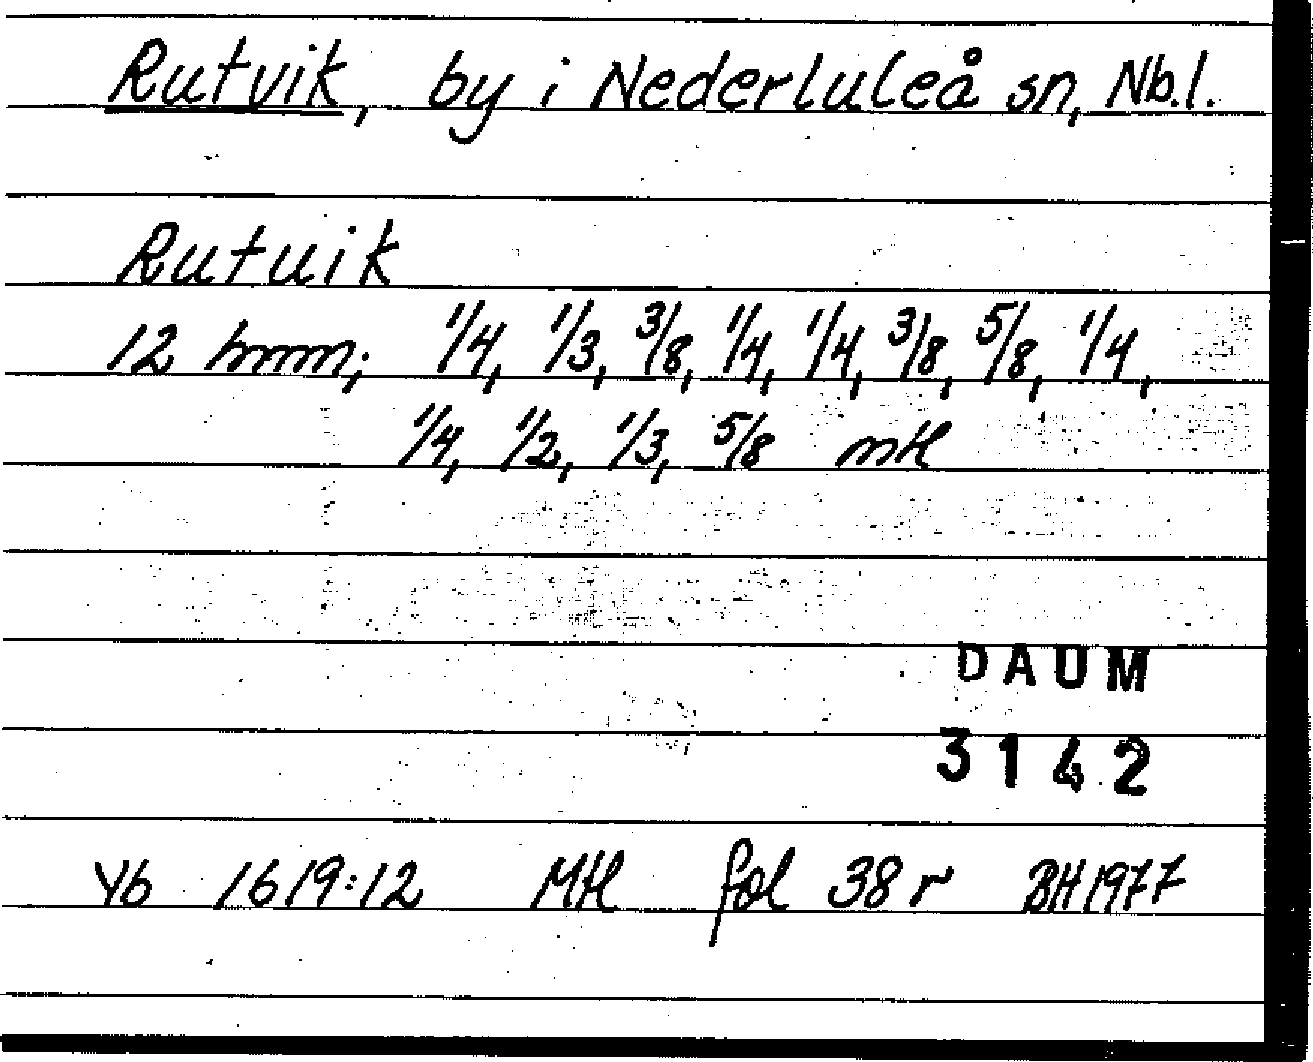 Rutvik, by i Nederluleå sn, Nb.l.
Rutuik
12 hmm; 1/4, 1/3, 3/8, 1/4, 1/4, 3/8, 5/8, 1/4,
1/4, 1/2, 1/3, 5/8 mtl
DAUM
3142
Yb 1619:12 Mtl fol 38 r BH 1977